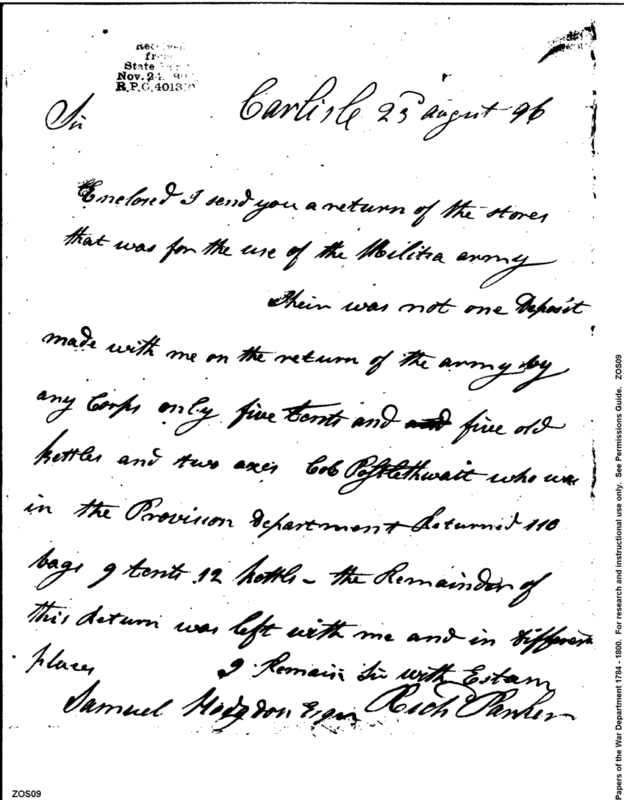 Received
from
State
Nov. 24
R.P.C. 4013
Carlisle 23d august 96
Sir
Enclosed I send you a return of the stores
that was for the use of the Militia army
Their was not one Deposit
made with me on the return of the army by
any Corps only five tents and and five old
kettles and two axes Cob Postlethwait who was
in the Provision Department Returned 110
bags 9 tents 12 kettls - the Remainder of
this Return was left with me and in different
places
I Remain Sir with Estam
Samuel Hodgdon Esqr
Richd Parker
ZOS09
Papers of the War Department 1784 - 1800. For research and instructional use only. See Permissions Guide. ZOS09